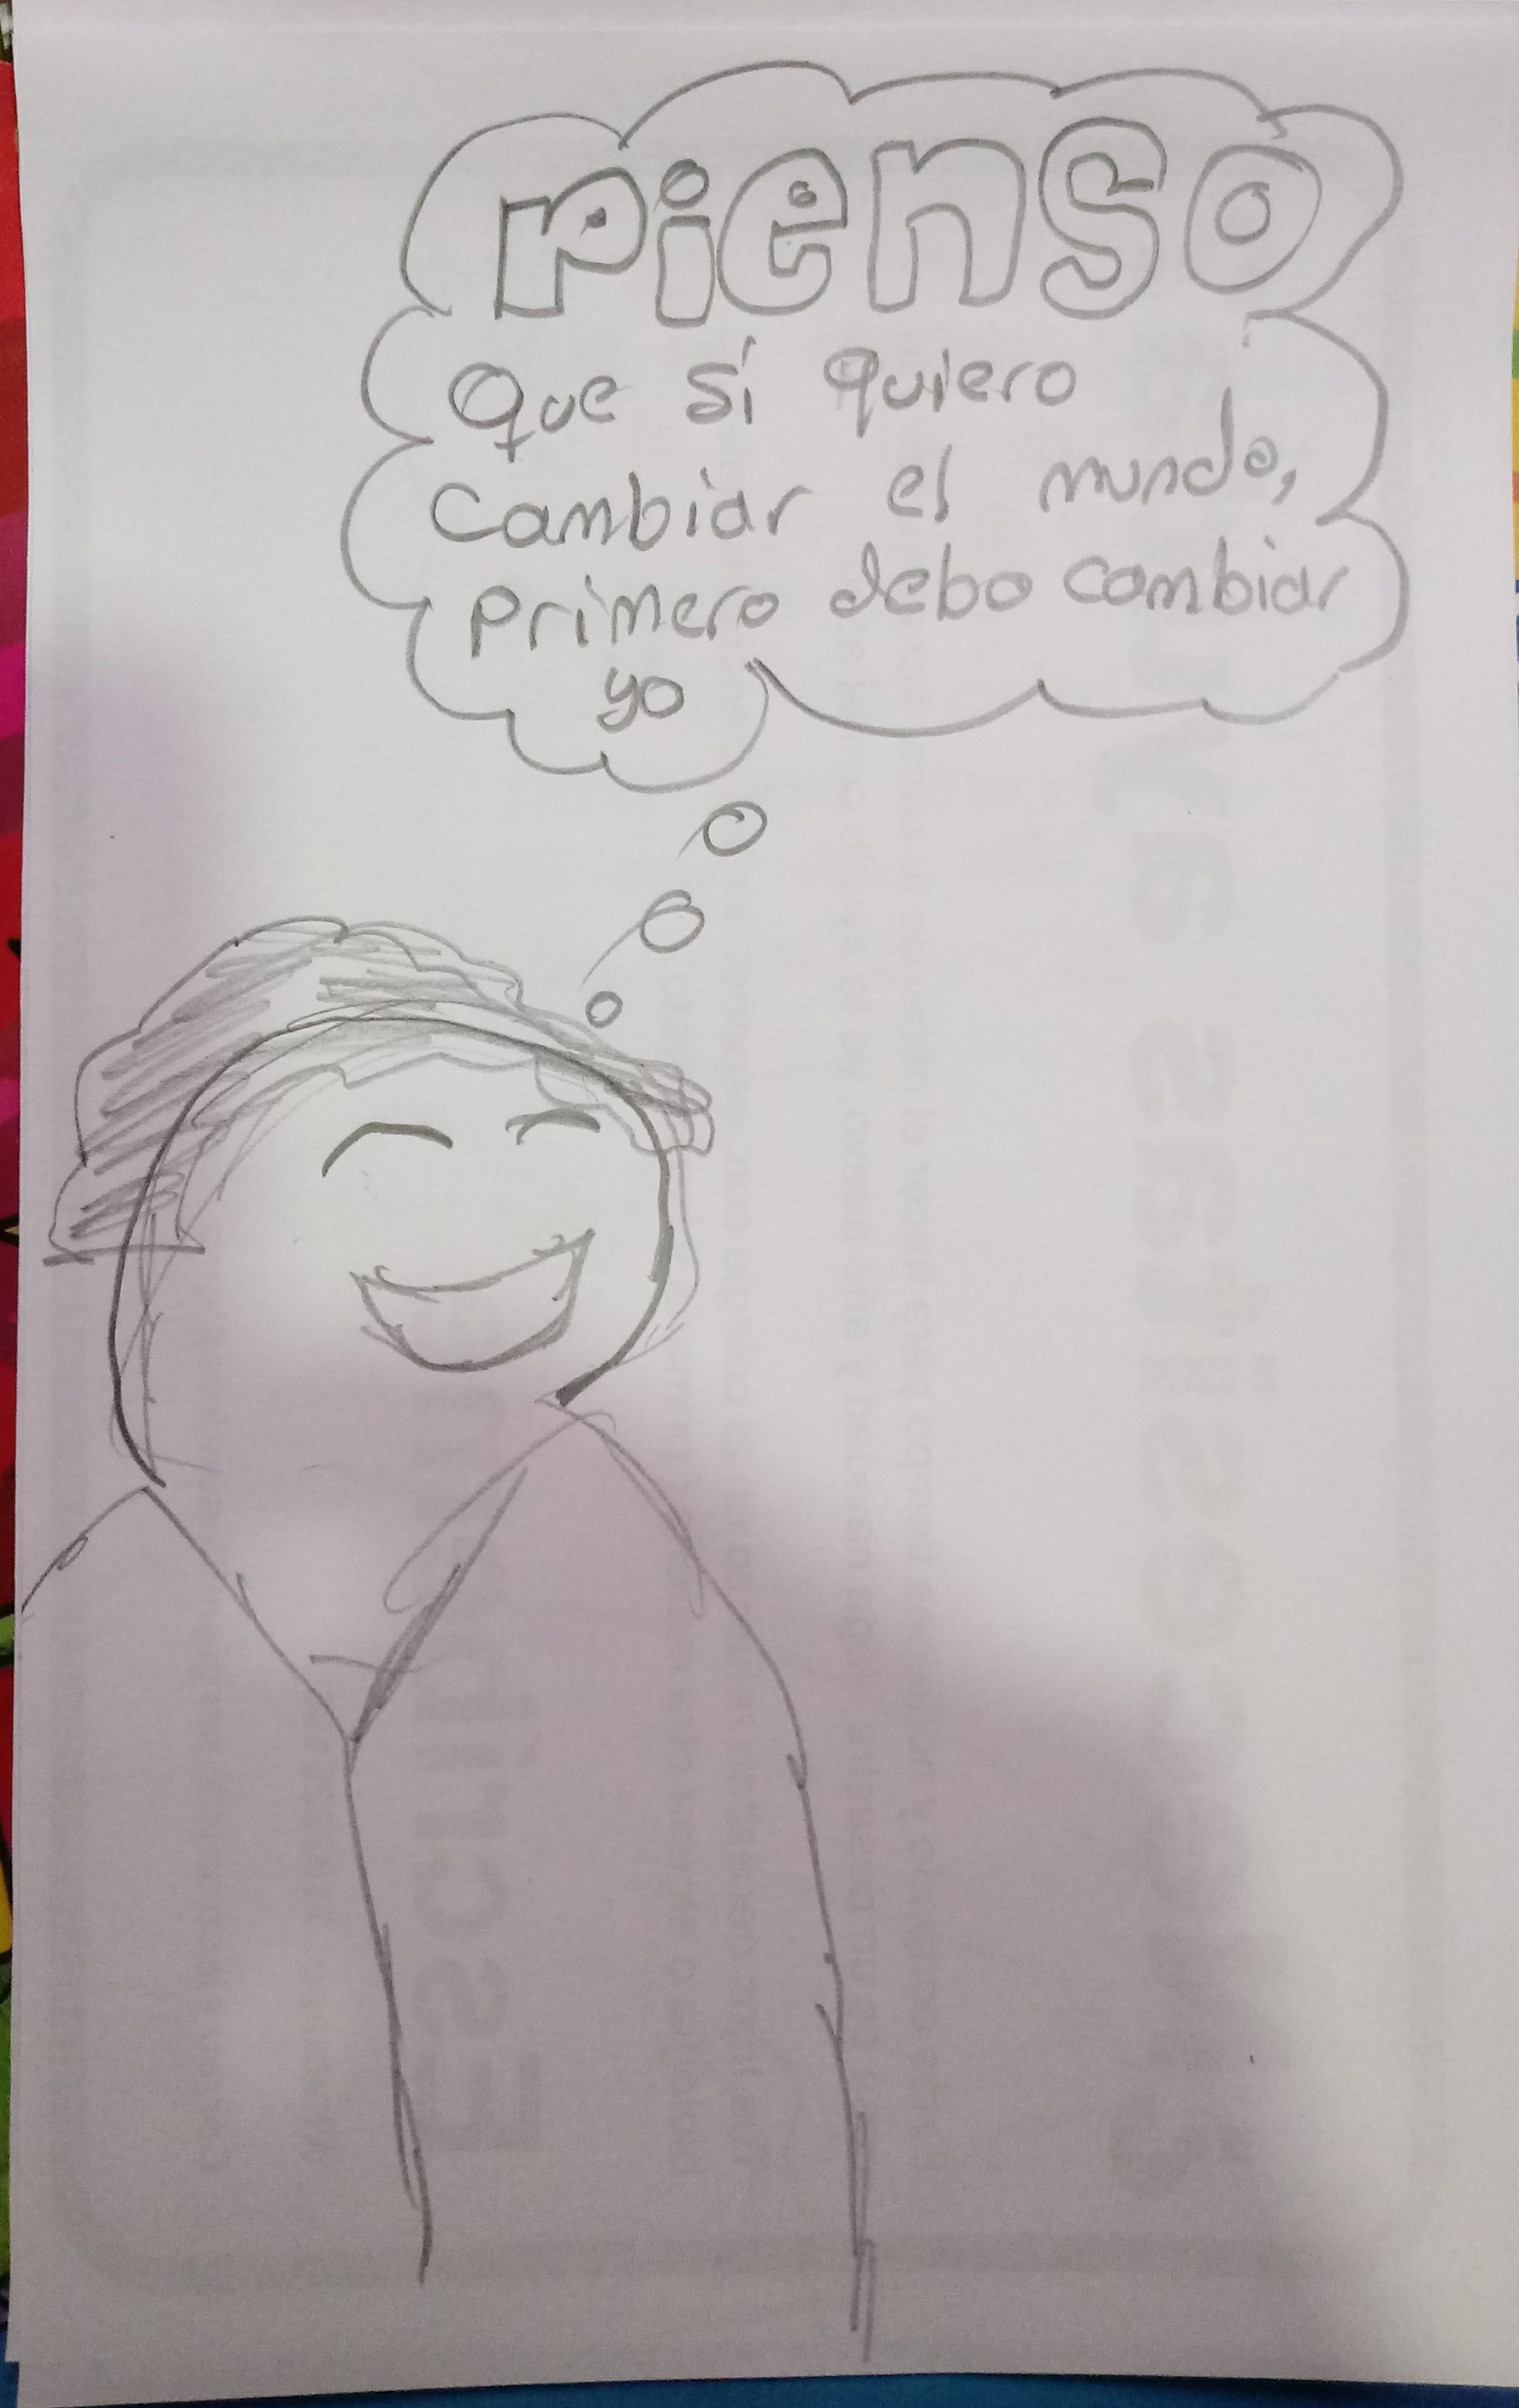 Pienso
Que sí quiero
cambiar el mundo,
Primero debo cambiar
yo